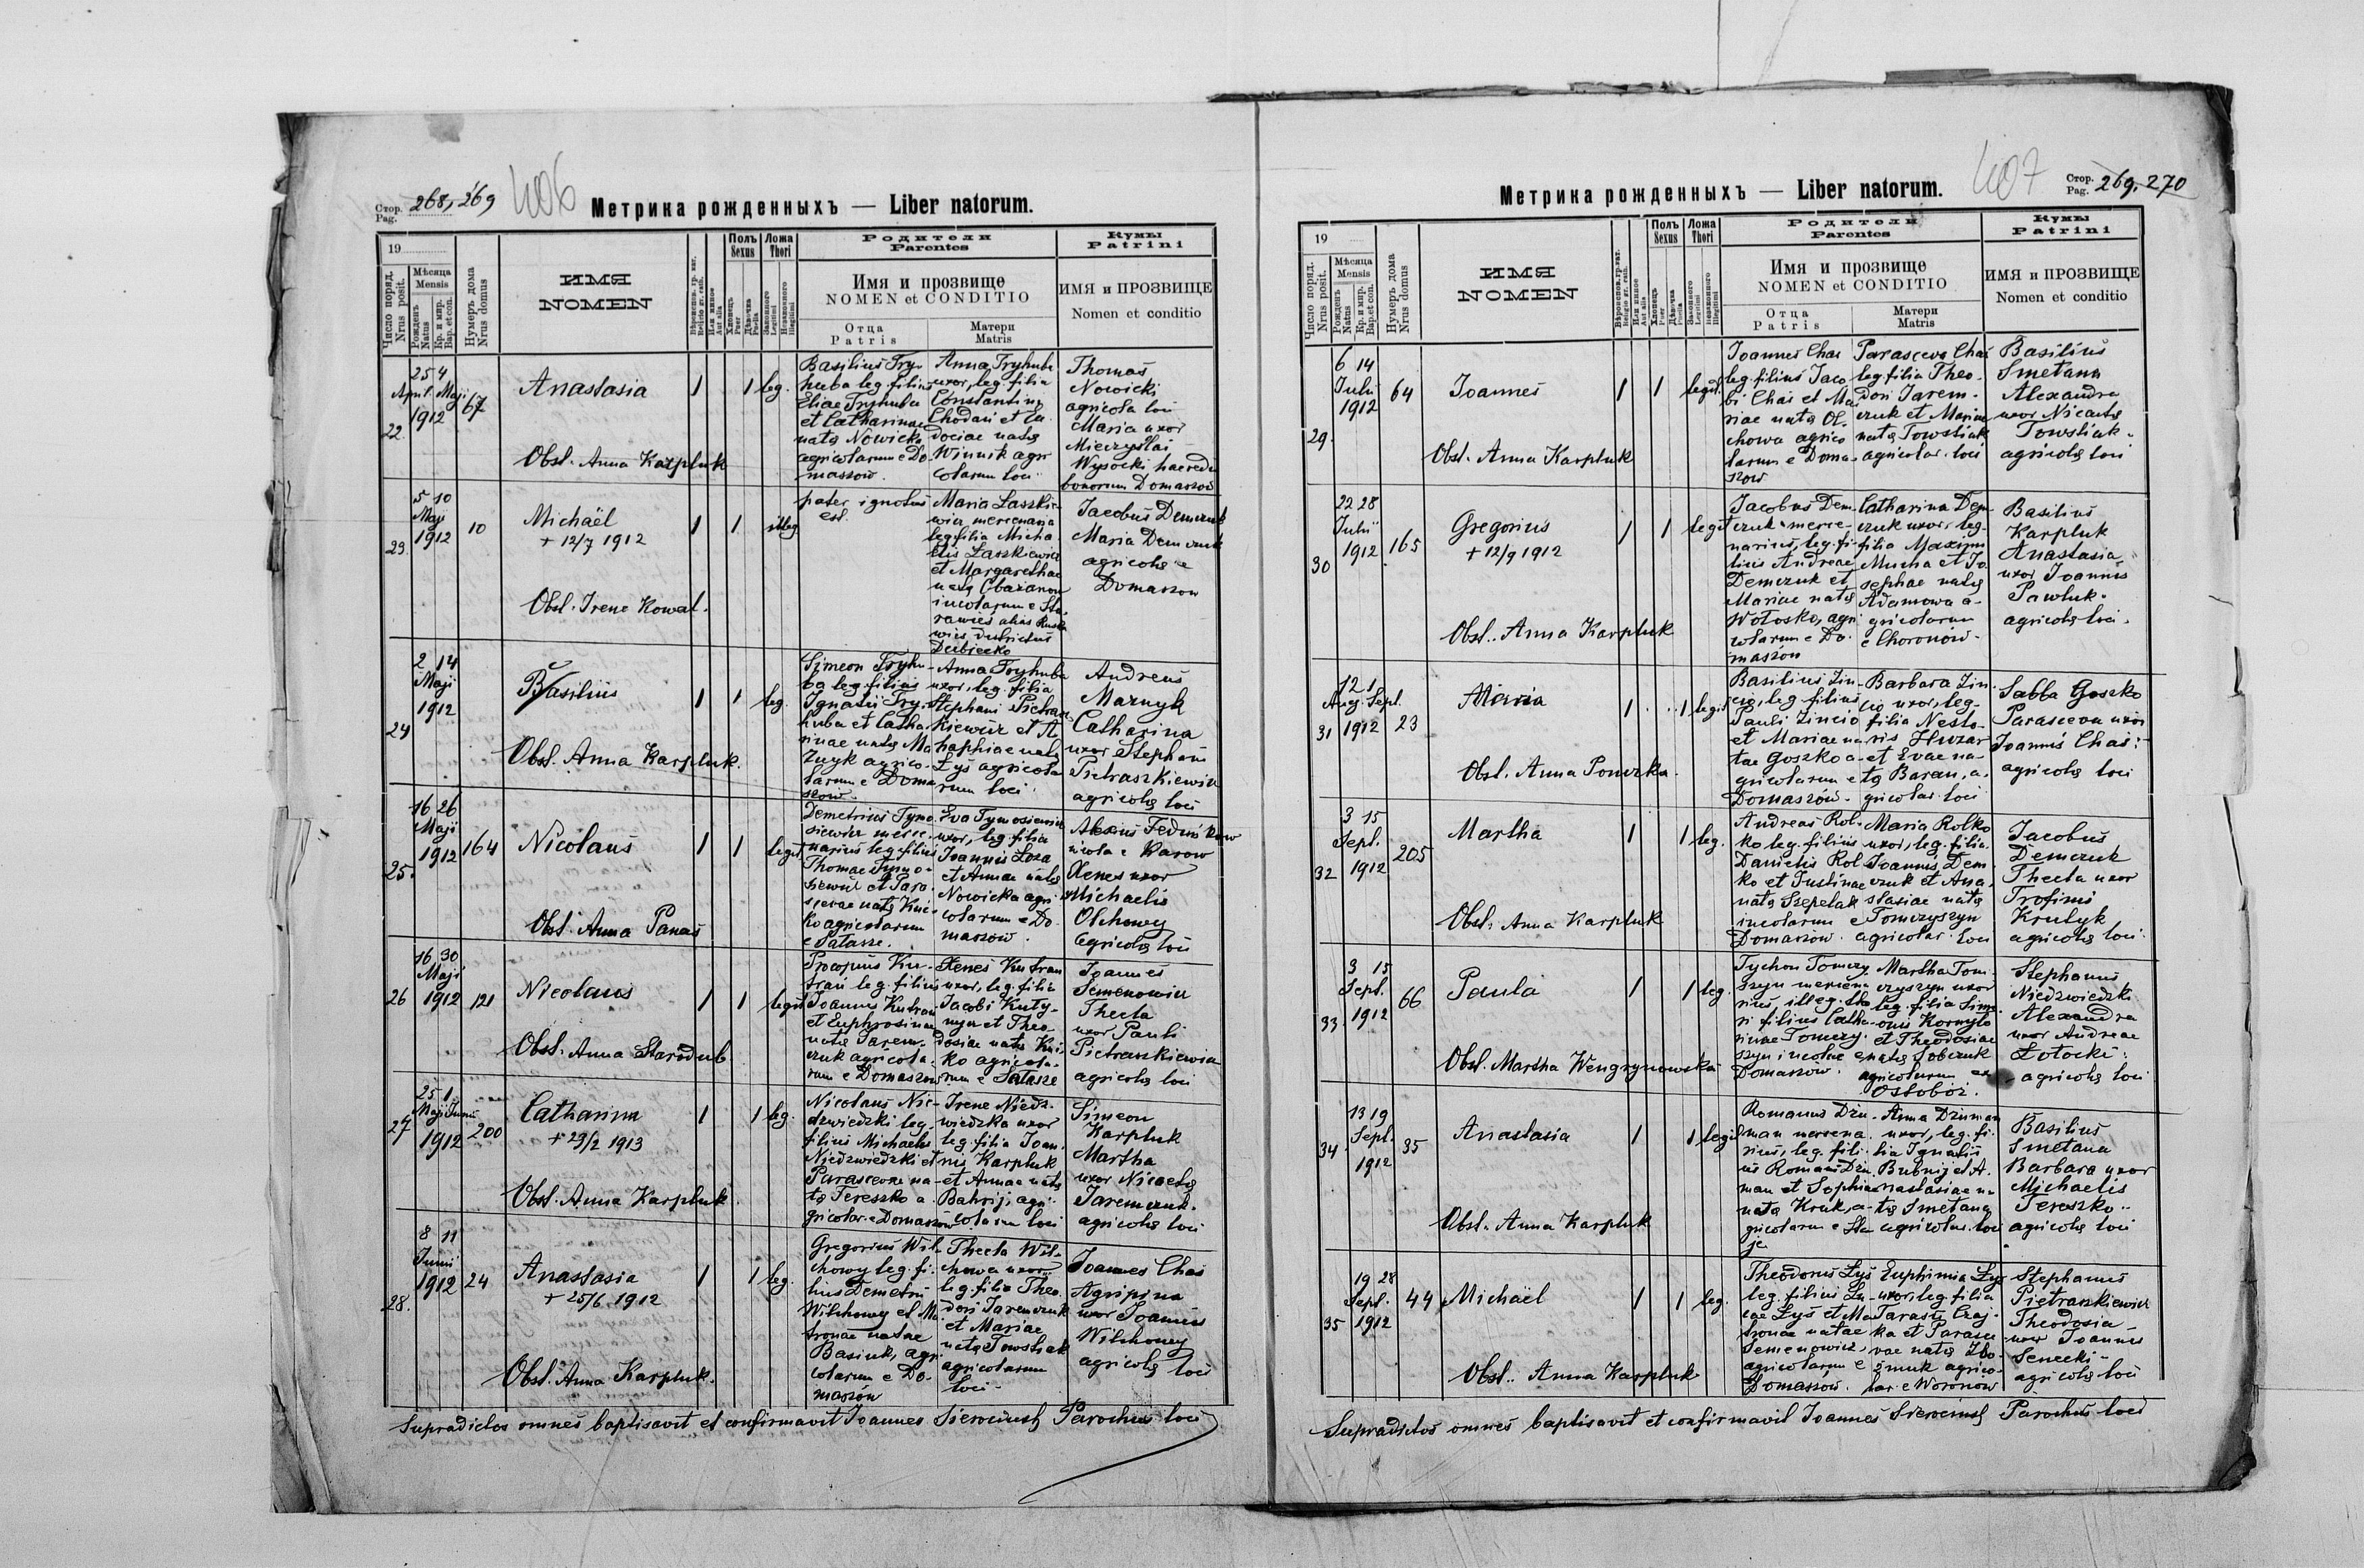 Стор. Pag. 268, 269
406
Метрика рожденныхъ — Liber natorum.
19
Число поряд. Nrus posit.
Мѣсяца Mensis
Рожденъ Natus
Кр. и мир. Bap. et con.
Нумеръ дома Nrus domus
ИМЯ
NOMEN
Или инное Aut alia
Полъ Sexus
Хлопецъ Puer
Дѣвочка Puella
Ложа Thori
Законного Legitimi
Незаконного Illegitimi
Родители
Parentes
Имя и прозвище
NOMEN et CONDITIO
Отца
Patris
Матери
Matris
Кумы
Patrini
ИМЯ и ПРОЗВИЩЕ
Nomen et conditio
22.
25 4
April Maji
1912
67
Anastasia
1 1 leg.
Obst. Anna Karpluk
Basilius Try-
huba leg. filius
Eliae Tryhuba
et Catharinae
natę Nowicki
agricolarum e Do-
maszow.
Anna Tryhuba
uxor, leg. filia
Constantini
Chodań et Eu-
dociae natę
Winnik agri-
colarum loci
Thomas
Nowicki
agricola loci
Maria uxor
Mieczyslai
Wysocki haeredis
bonorum Domaszow
23.
5 10
Maji
1912
10
Michaël
+ 12/7 1912
1 1 illeg
Obst. Irene Kowal.
pater ignotus
est.
Maria Laszkie-
wicz mercenaria
leg. filia Micha-
elis Laszkiewicz
et Margarethae
natę
incolarum e Sta-
rawies alias Ruska
wies districtus
Dubiecko
Jacobus Demczuk
Maria Demczuk
agricolę e
Domaszow
24
2 14
Maji
1912
Basilius
1 1 leg.
Obst. Anna Karpluk.
Simeon Tryhu-
ba leg. filius
Ignatii Try-
huba et Catha-
rinae natę Ma-
znyk agrico-
larum e Doma-
szow.
Anna Tryhuba
uxor, leg. filia
Stephani Pietrasz-
kiewicz et A-
haphiae natę
Łyś agricola-
rum loci
Andreas
Maznyk
Catharina
uxor Stephani
Pietraszkiewicz
agricolę loci
25.
16 26
Maji
1912
164
Nicolaus
1 1 legit
Obst. Anna Panas
Demetrius Tymo-
siewicz merce-
narius leg. filius
Thomae Tymo-
siewicz et Para-
scevae natę Kni-
ko agricolarum
e Sałasze.
Eva Tymosiewicz
uxor, leg. filia
Joannis Łoza
et Annae natę
Nowicka agri-
colarum e Do-
maszow.
Alexius
e Karow
Xenes uxor
Michaelis
Olchowy
agricolę loci
26
16 30
Maji
1912
121
Nicolaus
1 1 legit
Obst. Anna Starodub
Procopius Ku-
trań leg. filius
Joannis Kutrań
et Euphrosinae
natę Jarem-
czuk agricola-
rum e Domaszow
Xenes Kutrań
uxor, leg. filia
Jacobi Kuty-
nyn et Theo-
dosiae natę Kni-
ko agricola-
rum e Sałasze
Joannes
Semenowicz
Thecla
uxor Pauli
Pietraszkiewicz
agricolę loci
27
25 1
Maji Junii
1912
200
Catharina
+ 23/2 1913
1 1 leg.
Obst. Anna Karpluk.
Nicolaus Nie-
dzwiedzki leg.
filius Michaelis
Niedzwiedzki et
Parascevae na-
tę Tereszko a-
gricolar. e Domaszów
Irene Niedz-
wiedzka uxor
leg. filia Joan-
nis Karpluk
et Annae natę
Bahrij, agri-
colarum loci
Simeon
Karpluk
Martha
uxor Nicetę
Jaremczuk.
agricolę loci
28.
8 11
Junii
1912
24
Anastasia
+ 25/6 1912
1 1 leg.
Obst. Anna Karpluk.
Gregorius Wil-
chowy leg. fi-
lius Demetrii
Wilchowy et Ma-
tronae natae
Basiuk, agri-
colarum e Do-
maszów
Thecla Wil-
chowa uxor
leg. filia Theo-
dori Jaremczuk
et Mariae
natę Towstiak
agricolarum
loci.
Joannes Chaś
Agripina
uxor Joannis
Wilchowy
agricolę loci
Supradictos omnes baptisavit et confirmavit Joannes Parochus loci
407
Метрика рожденныхъ — Liber natorum.
Стор. Pag. 269. 270
19
Число поряд. Nrus posit.
Мѣсяца Mensis
Рожденъ Natus
Кр. и мир. Bap. et con.
Нумеръ дома Nrus domus
ИМЯ
NOMEN
Или инное Aut alia
Полъ Sexus
Хлопецъ Puer
Дѣвочка Puella
Ложа Thori
Законного Legitimi
Незаконного Illegitimi
Родители
Parentes
Имя и прозвище
NOMEN et CONDITIO
Отца
Patris
Матери
Matris
Кумы
Patrini
ИМЯ и ПРОЗВИЩЕ
Nomen et conditio
29.
6 14
Julii
1912
64
Joannes
1 1 legit.
Obst. Anna Karpluk
Joannes Chaś
leg. filius Jaco-
bi Chaś et Ma-
riae natę Ol-
chowa agrico-
larum e Doma-
szow
Parasceva Chaś
leg. filia Theo-
dori Jarem-
czuk et Mariae
natę Towstiak
agricolar. loci
Basilius
Smetana
Alexandra
uxor Nicetę
Towstiak.
agricolę loci
30
22 28
Julii
1912
165
Gregorius
+ 12/9 1912
1 1 legit
Obst. Anna Karpluk
Jacobus Dem-
czuk merce-
narius, leg. fi-
lius Andreae
Demczuk et
Mariae natę
Wołosko, agri-
colarum e Do-
maszów
Catharina Dem-
czuk uxor, leg.
filia Maximi
Mucha et Jo-
sephae natę
Adamowa a-
gricolarum
e Choronów.
Basilius
Karpluk
Anastasia
uxor Joannis
Pawluk.
agricolę loci.
31
12 1
Aug. Sept.
1912
23
Maria
1 1 legit
Obst. Anna Ponczka.
Basilius Zin-
cio, leg. filius
Pauli Zincio
et Mariae na-
tae Goszko a-
gricolarum e
Domaszów.
Barbara Zin-
cio uxor, leg.
filia Nesto-
ris Huzar
et Evae na-
tę Baran, a-
gricolar. loci
Sabba Goszko
Parasceva uxor
Joannis Chaś.
agricolę loci
32
3 15
Sept.
1912
205
Martha
1 1 leg.
Obst. Anna Karpluk
Andreas Rol-
ko leg. filius
Danielis Rol-
ko et Justinae
natę Szepelak
incolarum e
Domaszów.
Maria Rolko
uxor, leg. filia
Joannis Dem-
czuk et Ana-
stasiae natę
Tomczyszyn
agricolar. loci
Jacobus
Demczuk
Thecla uxor
Trofimi
Krulyk
agricolę loci
33.
3 15
Sept.
1912
66
Paula
1 1 leg.
Obst. Martha Wengrynowska
Tychon Tomczy-
szyn mercena-
rius, illeg. tho-
ri filius Catha-
rinae Tomczy-
szyn incolae e
Domaszow.
Martha Tom-
czyszyn uxor
leg. filia Sime-
onis Kornyło
et Theodosiae
natę Sobczuk
agricolarum ex
Ostobóż.
Stephanus
Niedzwiedzki
Alexandra
uxor Andreae
Łotocki.
agricolę loci
34.
13 19
Sept.
1912
35
Anastasia
1 1 legit
Obst. Anna Karpluk
Romanus Dziu-
man mercena-
rius, leg. fili-
us Romani Dziu-
man et Sophiae
natę Kruk, a-
gricolarum e Sta-
je
Anna Dziuman
uxor, leg. fi-
lia Ignatii
Bubnij et A-
nastasiae na-
tę Smetana
agricolar. loci
Basilius
Smetana
Barbara uxor
Michaelis
Tereszko.
agricolę loci
35
19 28
Sept.
1912
44
Michaël
1 1 leg.
Obst. Anna Karpluk
Theodorus Łyś
leg. filius Lu-
cae Łyś et Ma-
tronae natae
Semenowicz,
agricolarum e
Domaszów.
Euphimia Łyś
uxor, leg. filia
Tarasii Czaj-
ka et Parasce-
vae natę
agrico-
lar. e Woronow
Stephanus
Pietraszkiewicz
Theodosia
uxor Joannis
Senecki.
agricolę loci
Supradictos omnes baptisavit et confirmavit Joannes Parochus loci